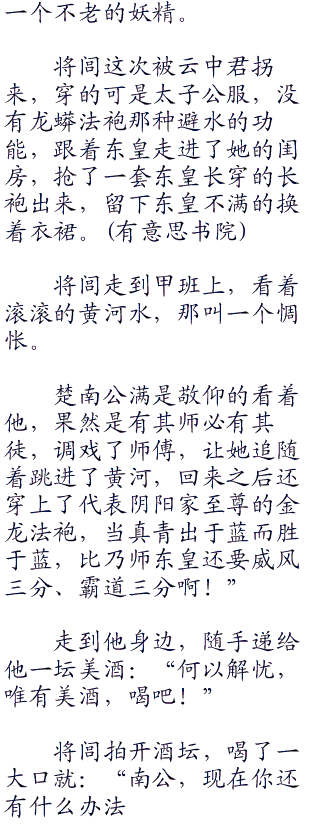 一个不老的妖精。
将闾这次被云中君拐
来，穿的可是太子公服，没
有龙蟒法袍那种避水的功
能，跟着东皇走进了她的闺
房，抢了一套东皇长穿的长
袍出来，留下东皇不满的换
着衣裙。(有意思书院)
将闾走到甲班上，看着
滚滚的黄河水，那叫一个惆
怅。
楚南公满是敬仰的看着
他，果然是有其师必有其
徒，调戏了师傅，让她追随
着跳进了黄河，回来之后还
穿上了代表阴阳家至尊的金
龙法袍，当真青出于蓝而胜
于蓝，比乃师东皇还要威风
三分、霸道三分啊！”
走到他身边，随手递给
他一坛美酒：“何以解忧，
唯有美酒，喝吧！”
将闾拍开酒坛，喝了一
大口就：“南公，现在你还
有什么办法